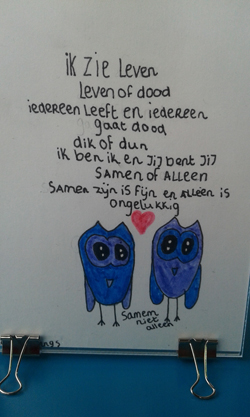 ik zie leven
leven of dood
iedereen leeft en iedereen
gaat dood
dik of dun
ik ben ik en jij bent jij
samen of alleen
samen zijn is fijn en alleen is
ongelukkig
samen
niet
alleen